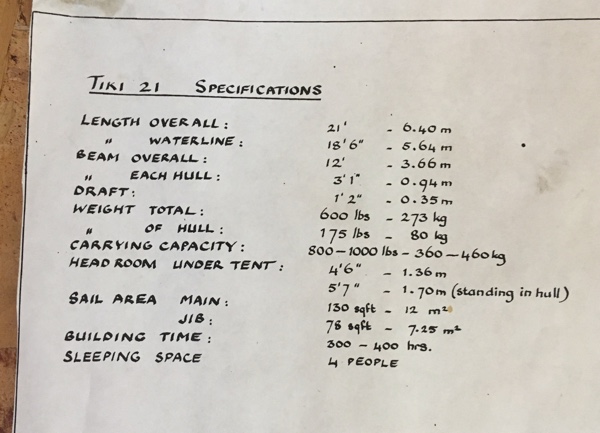 TIKI 21 SPECIFICATIONS
LENGTH OVERALL: 21' - 6.40 m
" WATERLINE: 18'6" - 5.64 m
BEAM OVERALL: 12' - 3.66 m
" EACH HULL: 3'1" - 0.94 m
DRAFT: 1'2" - 0.35 m
WEIGHT TOTAL: 600 lbs - 273 kg
" OF HULL: 175 lbs - 80 kg
CARRYING CAPACITY: 800 - 1000 lbs - 360 - 460 kg
HEADROOM UNDER TENT: 4'6" - 1.36 m
5'7" - 1.70 m (standing in hull)
SAIL AREA MAIN: 130 sqft - 12 m²
JIB: 78 sqft - 7.25 m²
BUILDING TIME: 300 - 400 hrs.
SLEEPING SPACE 4 PEOPLE